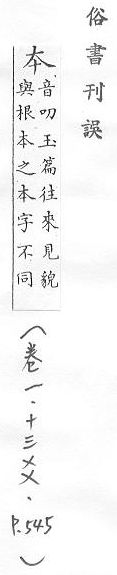 俗書刊誤
夲
音叨玉篇往來見貌
與根本之本字不同
(卷一.十三㐅㐅.P.545)